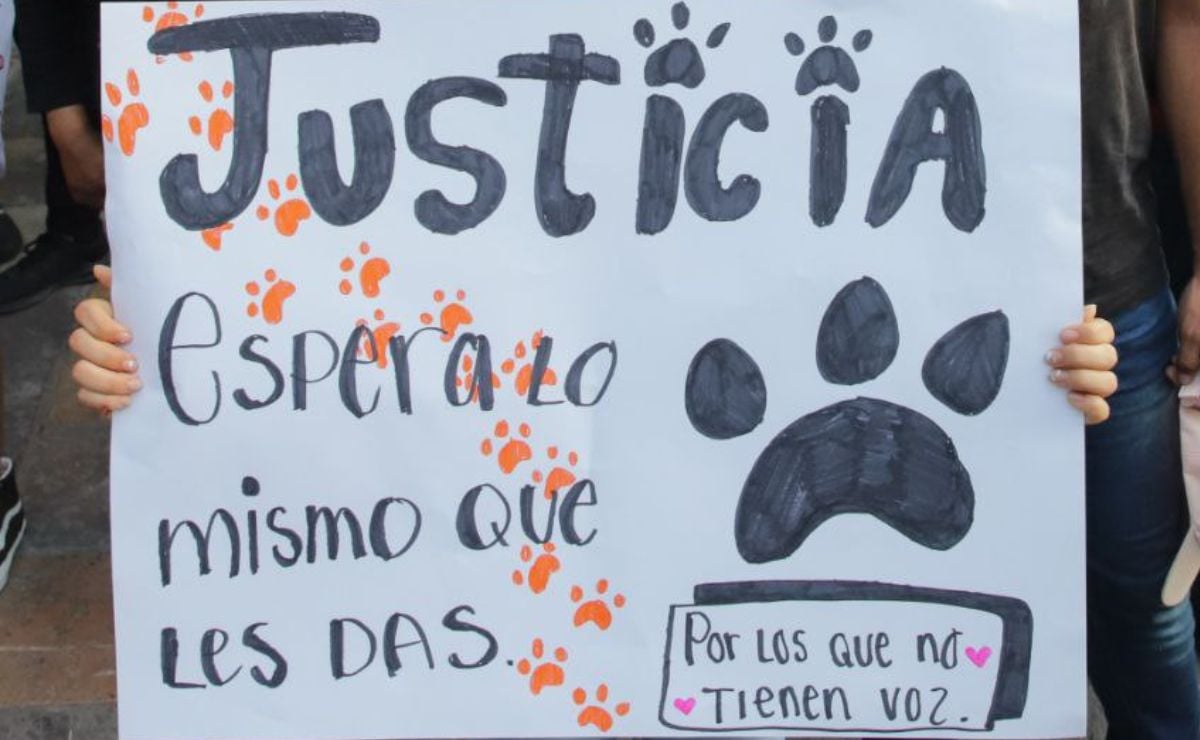 JusticiA
espera LO
mismo QUE
Les DAS.
Por Los que no
Tienen voz.